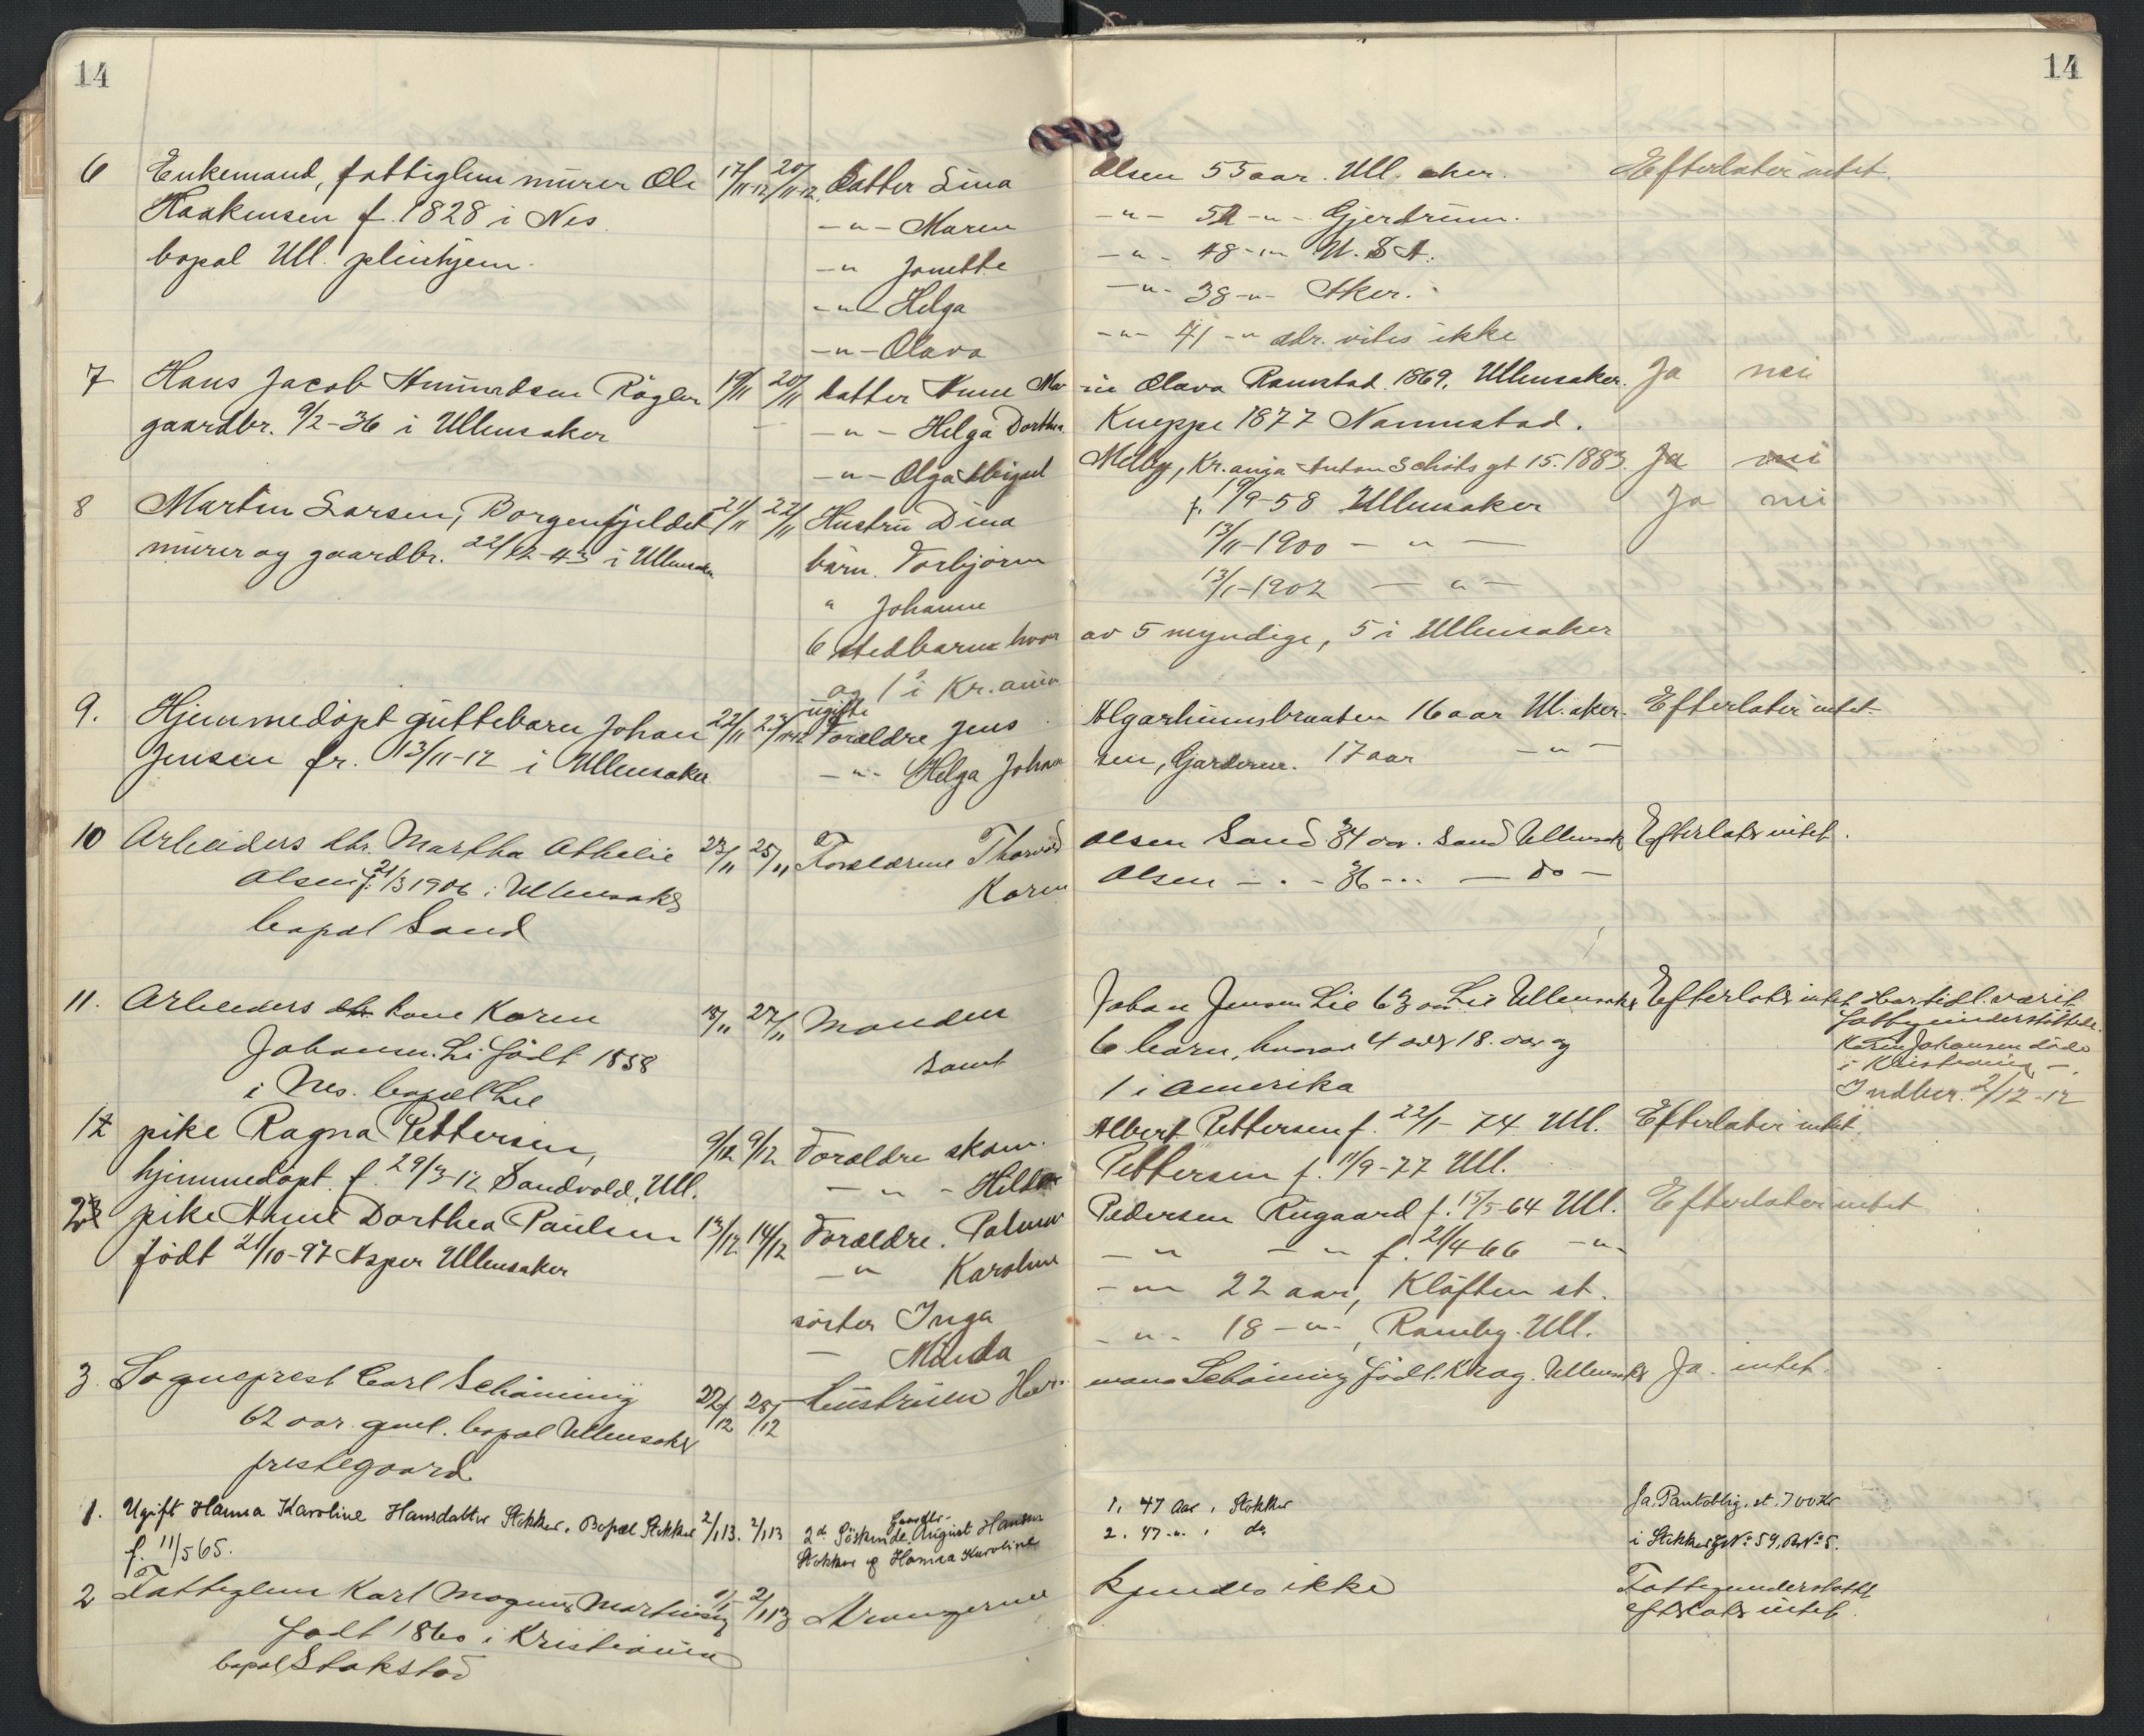 14
14
6 Enkemand, fattiglem murer Ole 17/11-12 20/11-12 Datter Lina Olsen 55 aar. Ull.aker. Efterlater intet.
Haakensen f. 1828 i Nes. -"- Maren -"- 52 -"- Gjerdrum.
bopæl Ull. pleiehjem. -"- Jonette -"- 48 -"- U.S.A.
-"- Helga -"- 38 -"- Aker.
-"- Olava -"- 41 -"- adr. vites ikke
7 Hans Jacob Amundsen Rögler 19/11 20/11 datter Anne Marie Olava Ramstad 1869, Ullensaker. Ja nei
gaardbr. 9/2-36 i Ullensaker -"- Helga Dorthea Kneppe 1877 Nannestad.
-"- Olga Abigael Melby, Kr.ania Anton Schöts gt 15. 1883. Ja nei
8 Martin Larsen, Borgenfjeldet 21/11 22/11 Hustru Dina f. 19/9-58 Ullensaker Ja nei
murer og gaardbr. 22/12-43 i Ullensaker barn. Torbjörn 13/11-1900 - " -
" Johanne 13/1-1902 - " -
6 stedbarn hvorav 5 myndige, 5 i Ullensaker
og 1 i Kr.ania
9. Hjemmedöpt guttebarn Johan 22/11 23/11-12 ugifte Forældre Jens Algarheimsbraaten 16 aar Ul.aker. Efterlater intet.
Jensen fr. 13/11-12 i Ullensaker -"- Helga Johansen, Garderne. 17 aar -"-
10 Arbeiders dtr. Martha Athelie 23/11 25/11 Forældrene Thorvald Olsen Sand 34 aar. Sand Ullensaker Efterlater intet.
Olsen f. 21/3 1906 i Ullensaker Karen Olsen - . - 36 - .. - do -
bopæl Sand
11. Arbeiders kone Karen 18/11 27/11 Manden Johan Jensen Lie 63 aar Lie Ullensaker Efterlater intet Har tidl. værit
Johansen Lie födt 1858 samt 6 barn, hvorav 4 over 18 aar og fattigunderstöttede.
i Nes. bopæl Lie 1 i Amerika Karen Johansen döde
i Kristiania -.
Indber. 2/12-12
12 pike Ragna Pettersen, 9/12 9/12 Forældre skom. Albert Pettersen f. 22/1-74 Ull. Efterlater intet.
hjemmedöpt. f. 29/3-12 Sandvold, Ull. - " - Hilda Pettersen f. 11/9-77 Ull.
2 pike Anne Dorthea Paulsen 13/12 14/12 Forældre. Palmer Pedersen Rugaard f. 15/5-64 Ull. Efterlater intet
födt 21/10-97 Asper Ullensaker -"- Karoline - " - " f. 21/4-66 -"-
söster Inga -"- 22 aar, Klöften st.
- Minda -"- 18 -"-, Ramby. Ull.
3 Sogneprest Carl Schöning 22/12 28/12 hustruen Hermana Schöning födt Krag. Ullensaker Ja. intet.
62 aar gml. bopæl Ullensaker
prestegaard
1. Ugift Hanna Karoline Hansdatter Stokker. Bopæl Stokker 2/1 13. 2/1 13 2de Söskende Gaardbr. August Hansen 1, 47 Aar, Stokker Ja. Pantoblig. st. 700 Kr
f. 11/5 65. Stokker og Hanna Karoline 2. 47 -"-, do i Stokker GNo 59, BNo 8.
2 Fattiglem Karl Magnus Martinsen 1/1 2/1 13 Arvingerne kjendes ikke Fattigunderstöttet
födt 1860 i Kristiania efterlater intet.
bopæl Stakstad